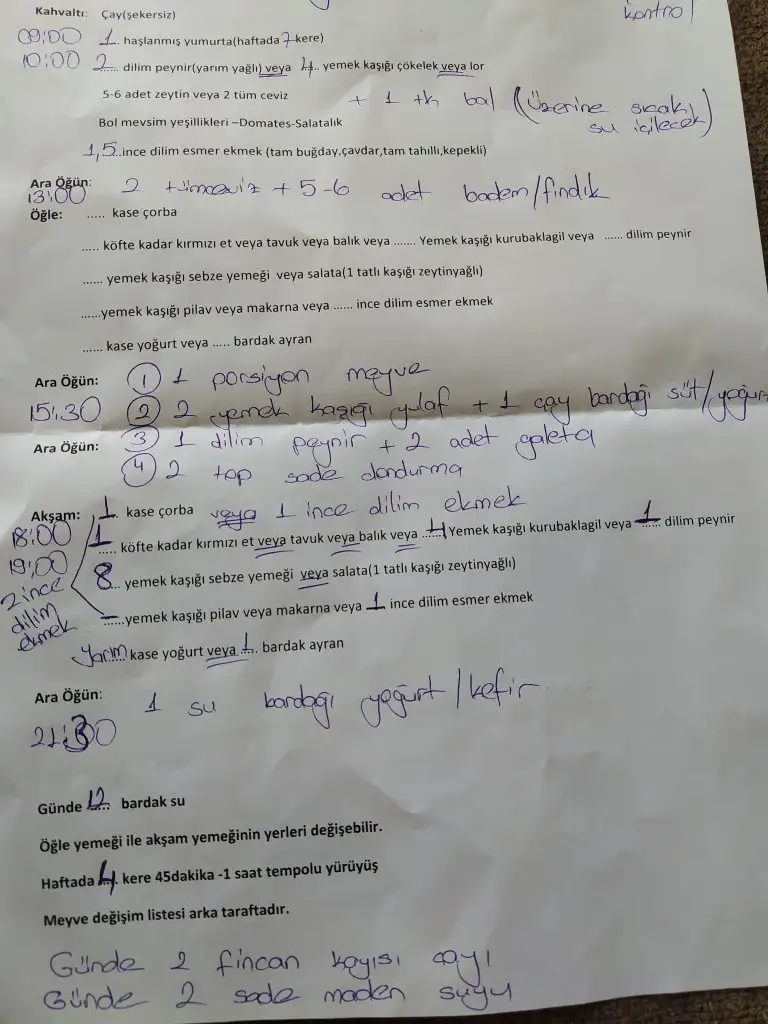 kontrol
Kahvaltı: Çay(şekersiz)
09:00 1 haşlanmış yumurta(haftada 7 kere)
10:00 2 dilim peynir(yarım yağlı) veya 4 yemek kaşığı çökelek veya lor
5-6 adet zeytin veya 2 tüm ceviz + 1 tk bal (üzerine sıcak su içilecek)
Bol mevsim yeşillikleri –Domates-Salatalık
1,5 ince dilim esmer ekmek (tam buğday,çavdar,tam tahıllı,kepekli)
Ara Öğün: 2 tüm ceviz + 5-6 adet badem/fındık
13:00
Öğle: ..... kase çorba
..... köfte kadar kırmızı et veya tavuk veya balık veya ....... Yemek kaşığı kurubaklagil veya ...... dilim peynir
...... yemek kaşığı sebze yemeği veya salata(1 tatlı kaşığı zeytinyağlı)
......yemek kaşığı pilav veya makarna veya ...... ince dilim esmer ekmek
...... kase yoğurt veya ..... bardak ayran
Ara Öğün: 1 1 porsiyon meyve
15:30 2 2 yemek kaşığı yulaf + 1 çay bardağı süt/yoğurt
Ara Öğün: 3 1 dilim peynir + 2 adet galeta
4 2 top sade dondurma
Akşam: 1 kase çorba veya 1 ince dilim ekmek
18:00 1 köfte kadar kırmızı et veya tavuk veya balık veya 4 Yemek kaşığı kurubaklagil veya 1 dilim peynir
19:00 8 yemek kaşığı sebze yemeği veya salata(1 tatlı kaşığı zeytinyağlı)
2 ince dilim ekmek
– yemek kaşığı pilav veya makarna veya 1 ince dilim esmer ekmek
Yarım kase yoğurt veya 1 bardak ayran
Ara Öğün: 1 su bardağı yoğurt/kefir
21:30
Günde 12 bardak su
Öğle yemeği ile akşam yemeğinin yerleri değişebilir.
Haftada 4 kere 45dakika -1 saat tempolu yürüyüş
Meyve değişim listesi arka taraftadır.
Günde 2 fincan kayısı çayı
Günde 2 sade maden suyu